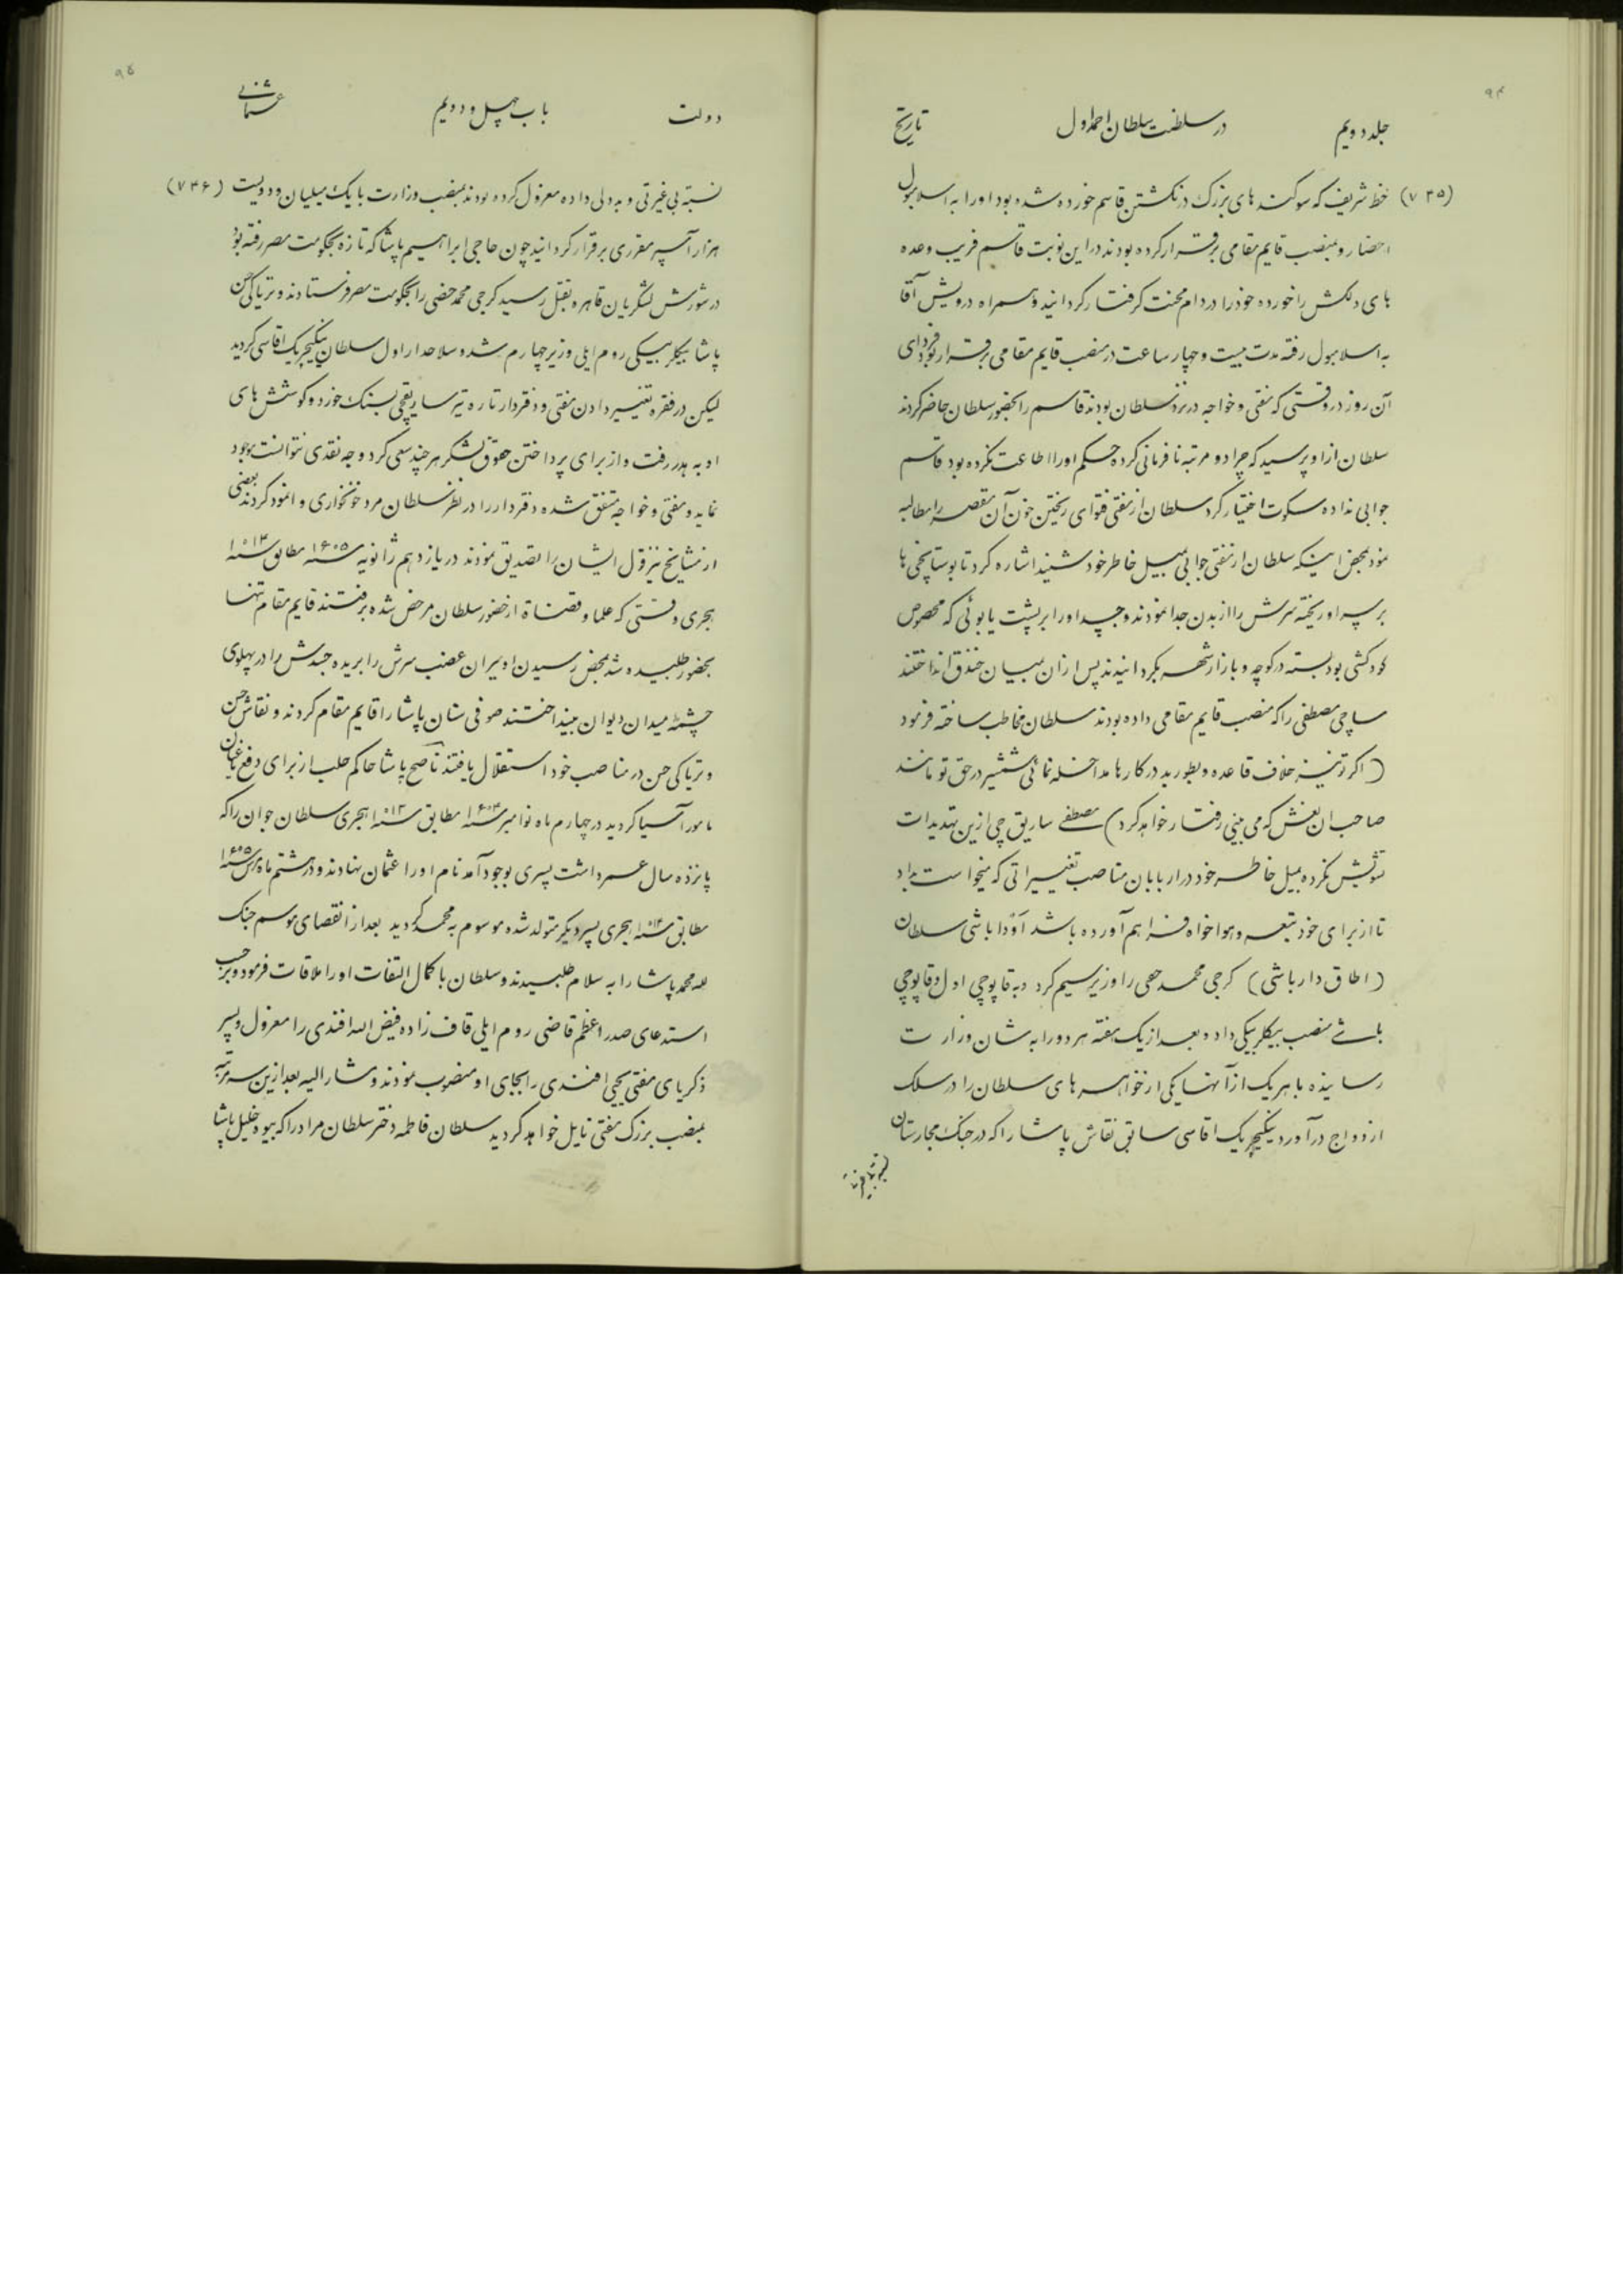 ۹۴
جلد دویم در سلطنت سلطان احمد اول تاریخ
(۷۴۵) خط شریف که سوکند های بزرک در نکشتن قاسم خورده شده بود اورا به اسلامبول
احضار و بمنصب قایم مقامی برقرار کرده بودند در این نوبت قاسم فریب وعده
های دلکش را خورده خود را در دام محنت گرفتار گردانید و همراه درویش آقا
به اسلامبول رفته مدت بیست و چهار ساعت در منصب قایم مقامی برقرار بود فردای
آن روز در وقتی که مفتی و خواجه در نزد سلطان بودند قاسم را بحضور سلطان حاضر کردند
سلطان از او پرسید که چرا دو مرتبه نافرمانی کرده حکم اورا اطاعت نکرده بود قاسم
جوابی نداده سکوت اختیار کرد سلطان از مفتی فتوای ریختن خون آن مقصر را مطالبه
نمود بمحض اینکه سلطان از مفتی جوابی بمیل خاطر خود شنید اشاره کرد تا بوستانچی ها
بر سر او ریخته سرش را از بدن جدا نمودند و جسد اورا بر پشت یابوئی که مخصوص
کودکشی بود بسته در کوچه و بازار شهر بکردانیدند پس از آن بمیان خندق انداختند
ساچی مصطفی را که منصب قایم مقامی داده بودند سلطان مخاطب ساخته فرمود
(اکر تو نیز خلاف قاعده و بطور بد در کارها مداخله نمائی شمشیر در حق تو مانند
صاحب ان نعش که می بینی رفتار خواهد کرد) مصطفی ساریق چی ازین تهدیدات
تشویش نکرده بمیل خاطر خود در اربابان مناصب تغییراتی که میخواست بداد
تا از برای خود تبعه و هواخواه فراهم آورده باشد اودا باشی سلطان
(اطاق دار باشی) کرجی محمد حصی را وزیر سیم کرد و به قاپوچی اول و قاپوچی
باشی منصب بیکلربیکی داد و بعد از یک هفته هر دو را به شان وزارت
رسانیده با هر یک از آنها یکی از خواهر های سلطان را در سلک
ازدواج درآورد ینکیچریک اقاسی سابق نقاش پاشا را که در جنک مجارستان
۹۵
دولت باب چهل و دویم عثمانی
نسبت بی غیرتی و بددلی داده معزول کرده بودند بمنصب وزارت با یک میلیان و دویست (۷۴۶)
هزار آسپر مقرری برقرار گردانید چون حاجی ابراهیم پاشا که تازه بحکومت مصر رفته بود
در شورش لشکریان قاهره بقتل رسید کرجی محمد خضی را بحکومت مصر فرستادند و تریاکی حسن
پاشا بیکلربیکی روم ایلی وزیر چهارم شد و سلاحدار اول سلطان ینکیچریک اقاسی کردید
لیکن در فقره تغییر دادن مفتی و دفتردار تاره تیر ساریقچی بسنک خورد و کوشش های
او به هدر رفت و از برای پرداختن حقوق لشکر هر چند سعی کرد وجه نقدی نتوانست موجود
نماید و مفتی و خواجه متفق شده دفتردار را در نظر سلطان مرد خونخواری وانمود کردند بعضی
از مشایخ نیز قول ایشان را تصدیق نمودند در یازدهم ژانویه سنه ۱۶۰۵ مطابق سنه ۱۰۱۳
هجری وقتی که علما و قضاة از حضور سلطان مرخص شده برفتند قایم مقام تنها
بحضور طلبیده شد بمحض رسیدن او میران غضب سرش را بریده جسدش را در پهلوی
چشمه میدان دیوان بینداختند صوفی سنان پاشا را قایم مقام کردند و نقاش حسن
و تریاکی حسن در مناصب خود استقلال یافتند ناصح پاشا حاکم حلب از برای دفع یاغیان
مامور آسیا کردید در چهارم ماه نوامبر سنه ۱۶۰۴ مطابق سنه ۱۰۱۳ هجری سلطان جوان را که
پانزده سال عمر داشت پسری بوجود آمد نام اورا عثمان نهادند و در هشتم ماه مارس سنه ۱۶۰۵
مطابق سنه ۱۰۱۴ هجری پسر دیگر متولد شده موسوم به محمد کردید بعد از انقضای موسم جنک
لله محمد پاشا را به سلام طلبیدند و سلطان با کمال التفات اورا ملاقات فرمود و برحسب
استدعای صدر اعظم قاضی روم ایلی قاف زاده فیض الله افندی را معزول و پسر
ذکریای مفتی یحیی افندی را بجای او منصوب نمودند و مشارالیه بعد ازین سه مرتبه
بمنصب بزرک مفتی نایل خواهد کردید سلطان فاطمه دختر سلطان مراد را که بیوه خلیل پاشا